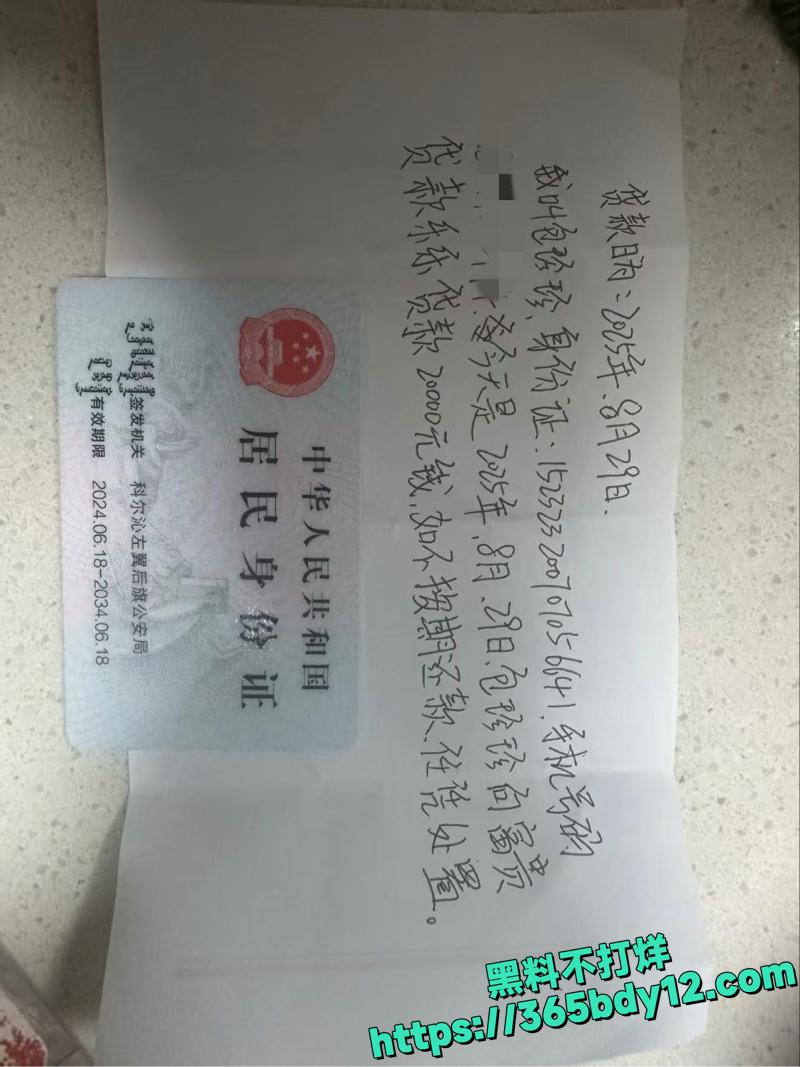 贷款日为:2025年、8月29日.
我叫[已隐去]、身份证:[已隐去]、手机号码
今天是2025年、8月、29日、[已隐去]向富贵
贷款乐乐贷款20000元钱,如不按期还款任凭处置。
中华人民共和国
居民身份证
签发机关 科尔沁左翼后旗公安局
有效期限 2024.06.18-2034.06.18
黑料不打烊
https://365bdy12.com